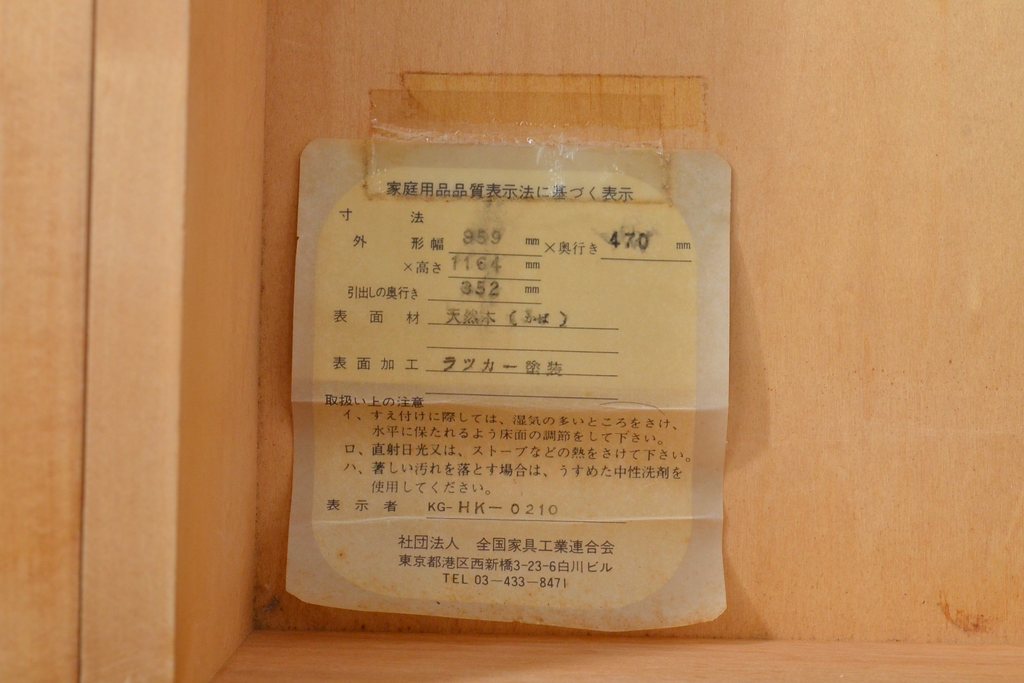 家庭用品品質表示法に基づく表示
寸法
外形幅 959 mm ×奥行き 470 mm
×高さ 1164 mm
引出しの奥行き 352 mm
表面材 天然木(かば)
表面加工 ラツカー塗装
取扱い上の注意
イ、すえ付けに際しては、湿気の多いところをさけ、
水平に保たれるよう床面の調節をして下さい。
ロ、直射日光又は、ストーブなどの熱をさけて下さい。
ハ、著しい汚れを落とす場合は、うすめた中性洗剤を
使用してください。
表示者 KG-HK-0210
社団法人 全国家具工業連合会
東京都港区西新橋3-23-6白川ビル
TEL 03-433-8471